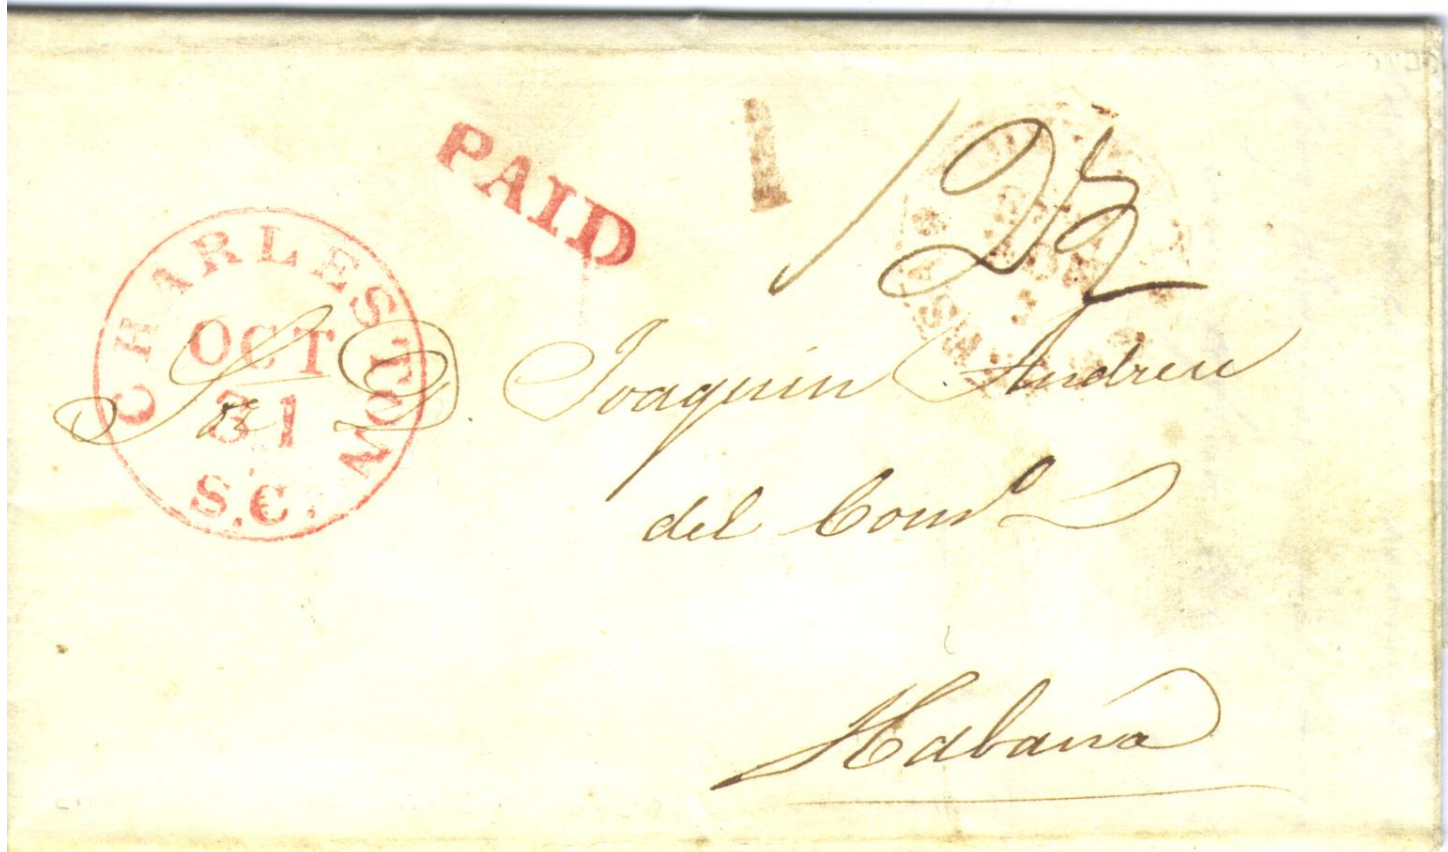 PAID
1
12½
CHARLESTON
OCT
31
S.C.
Sor Dn. Joaquin Andreu
del Com
Habana